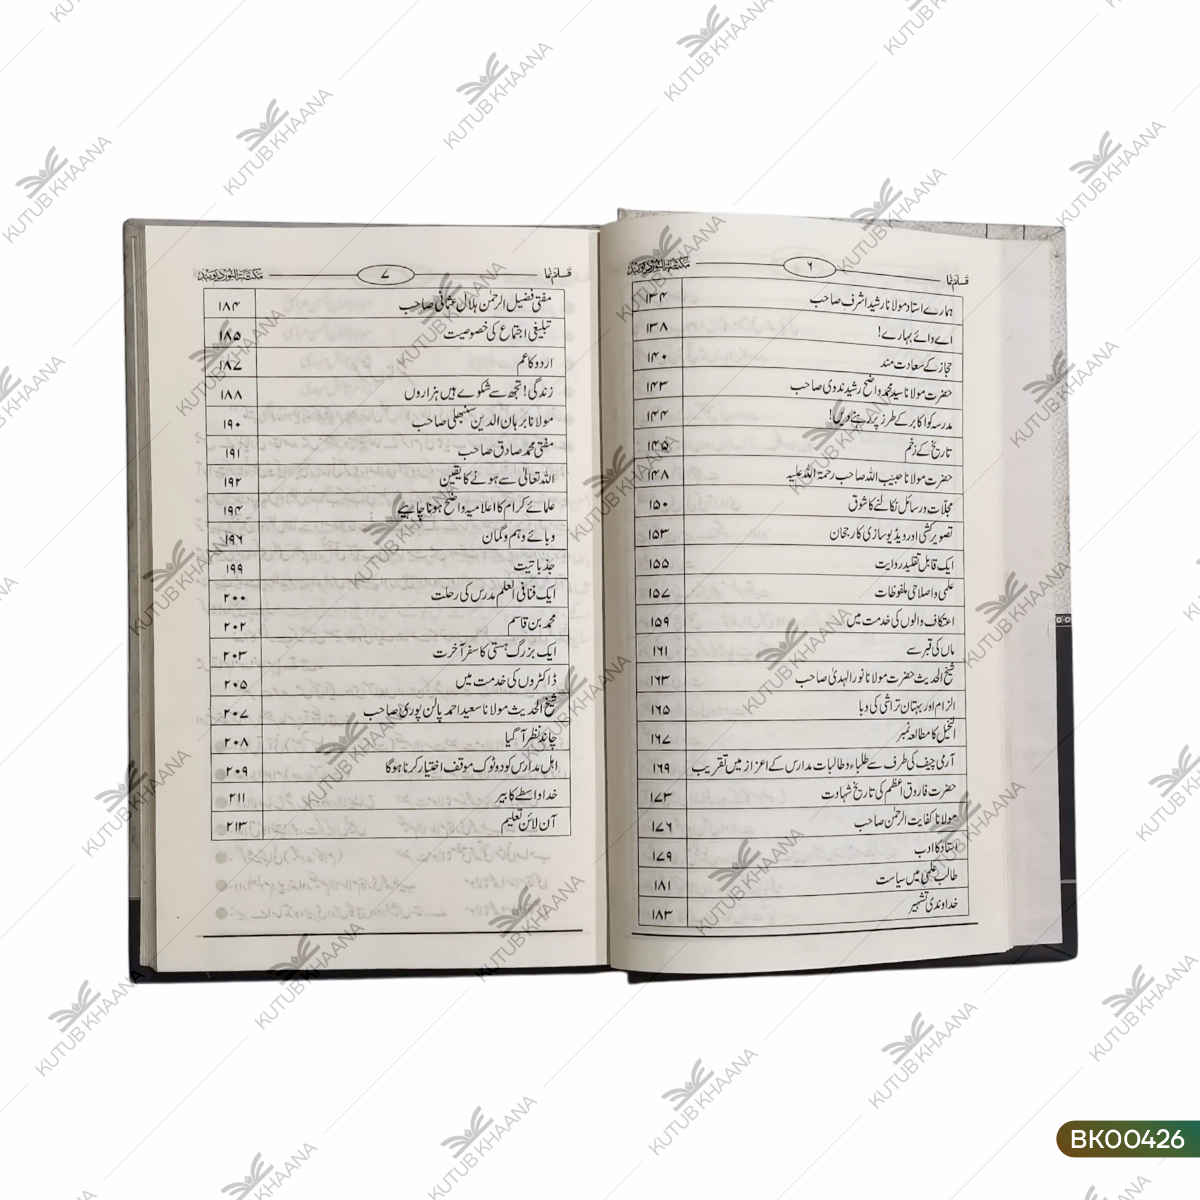 قلم نما ۶ مکتبۃ النور دیوبند
ہمارے استاد مولانا رشید اشرف صاحب ۱۳۴
اے وائے بہارے! ۱۳۸
حجاز کے سعادت مند ۱۴۰
حضرت مولانا سید محمد واضح رشید ندوی صاحب ۱۴۳
مدرسہ کو اکابر کے طرز پر رہنے دیں! ۱۴۴
تاریخ کے زخم ۱۴۵
حضرت مولانا حبیب اللہ صاحب رحمۃ اللہ علیہ ۱۴۸
مجلات و رسائل نکالنے کا شوق ۱۵۰
تصویر کشی اور ویڈیو سازی کا رجحان ۱۵۳
ایک قابل تقلید روایت ۱۵۵
علمی و اصلاحی ملفوظات ۱۵۷
اعتکاف والوں کی خدمت میں ۱۵۹
ماں کی قبر سے ۱۶۱
شیخ الحدیث حضرت مولانا نور الہدیٰ صاحب ۱۶۳
الزام اور بہتان تراشی کی وبا ۱۶۵
النخیل کا مطالعہ نمبر ۱۶۷
آرمی چیف کی طرف سے طلباء و طالبات مدارس کے اعزاز میں تقریب ۱۶۹
حضرت فاروق اعظم کی تاریخ شہادت ۱۷۳
مولانا کفایت الرحمٰن صاحب ۱۷۶
استاد کا ادب ۱۷۹
طالب علمی میں سیاست ۱۸۱
خداوندی تشہیر ۱۸۳
قلم نما ۷ مکتبۃ النور دیوبند
مفتی فضیل الرحمٰن ہلال عثمانی صاحب ۱۸۴
تبلیغی اجتماع کی خصوصیت ۱۸۵
اردو کا غم ۱۸۷
زندگی! تجھ سے شکوے ہیں ہزاروں ۱۸۸
مولانا برہان الدین سنبھلی صاحب ۱۹۰
مفتی محمد صادق صاحب ۱۹۱
اللہ تعالیٰ سے ہونے کا یقین ۱۹۲
علمائے کرام کا اعلامیہ واضح ہونا چاہیے ۱۹۴
وبائے وہم و گمان ۱۹۶
جذباتیت ۱۹۹
ایک فنا فی العلم مدرس کی رحلت ۲۰۰
محمد بن قاسم ۲۰۲
ایک بزرگ ہستی کا سفر آخرت ۲۰۳
ڈاکٹروں کی خدمت میں ۲۰۵
شیخ الحدیث مولانا سعید احمد پالن پوری صاحب ۲۰۷
چاند نظر آ گیا ۲۰۸
اہل مدارس کو دو ٹوک موقف اختیار کرنا ہوگا ۲۰۹
خدا واسطے کا بیر ۲۱۱
آن لائن تعلیم ۲۱۳
KUTUB KHAANA
BK00426